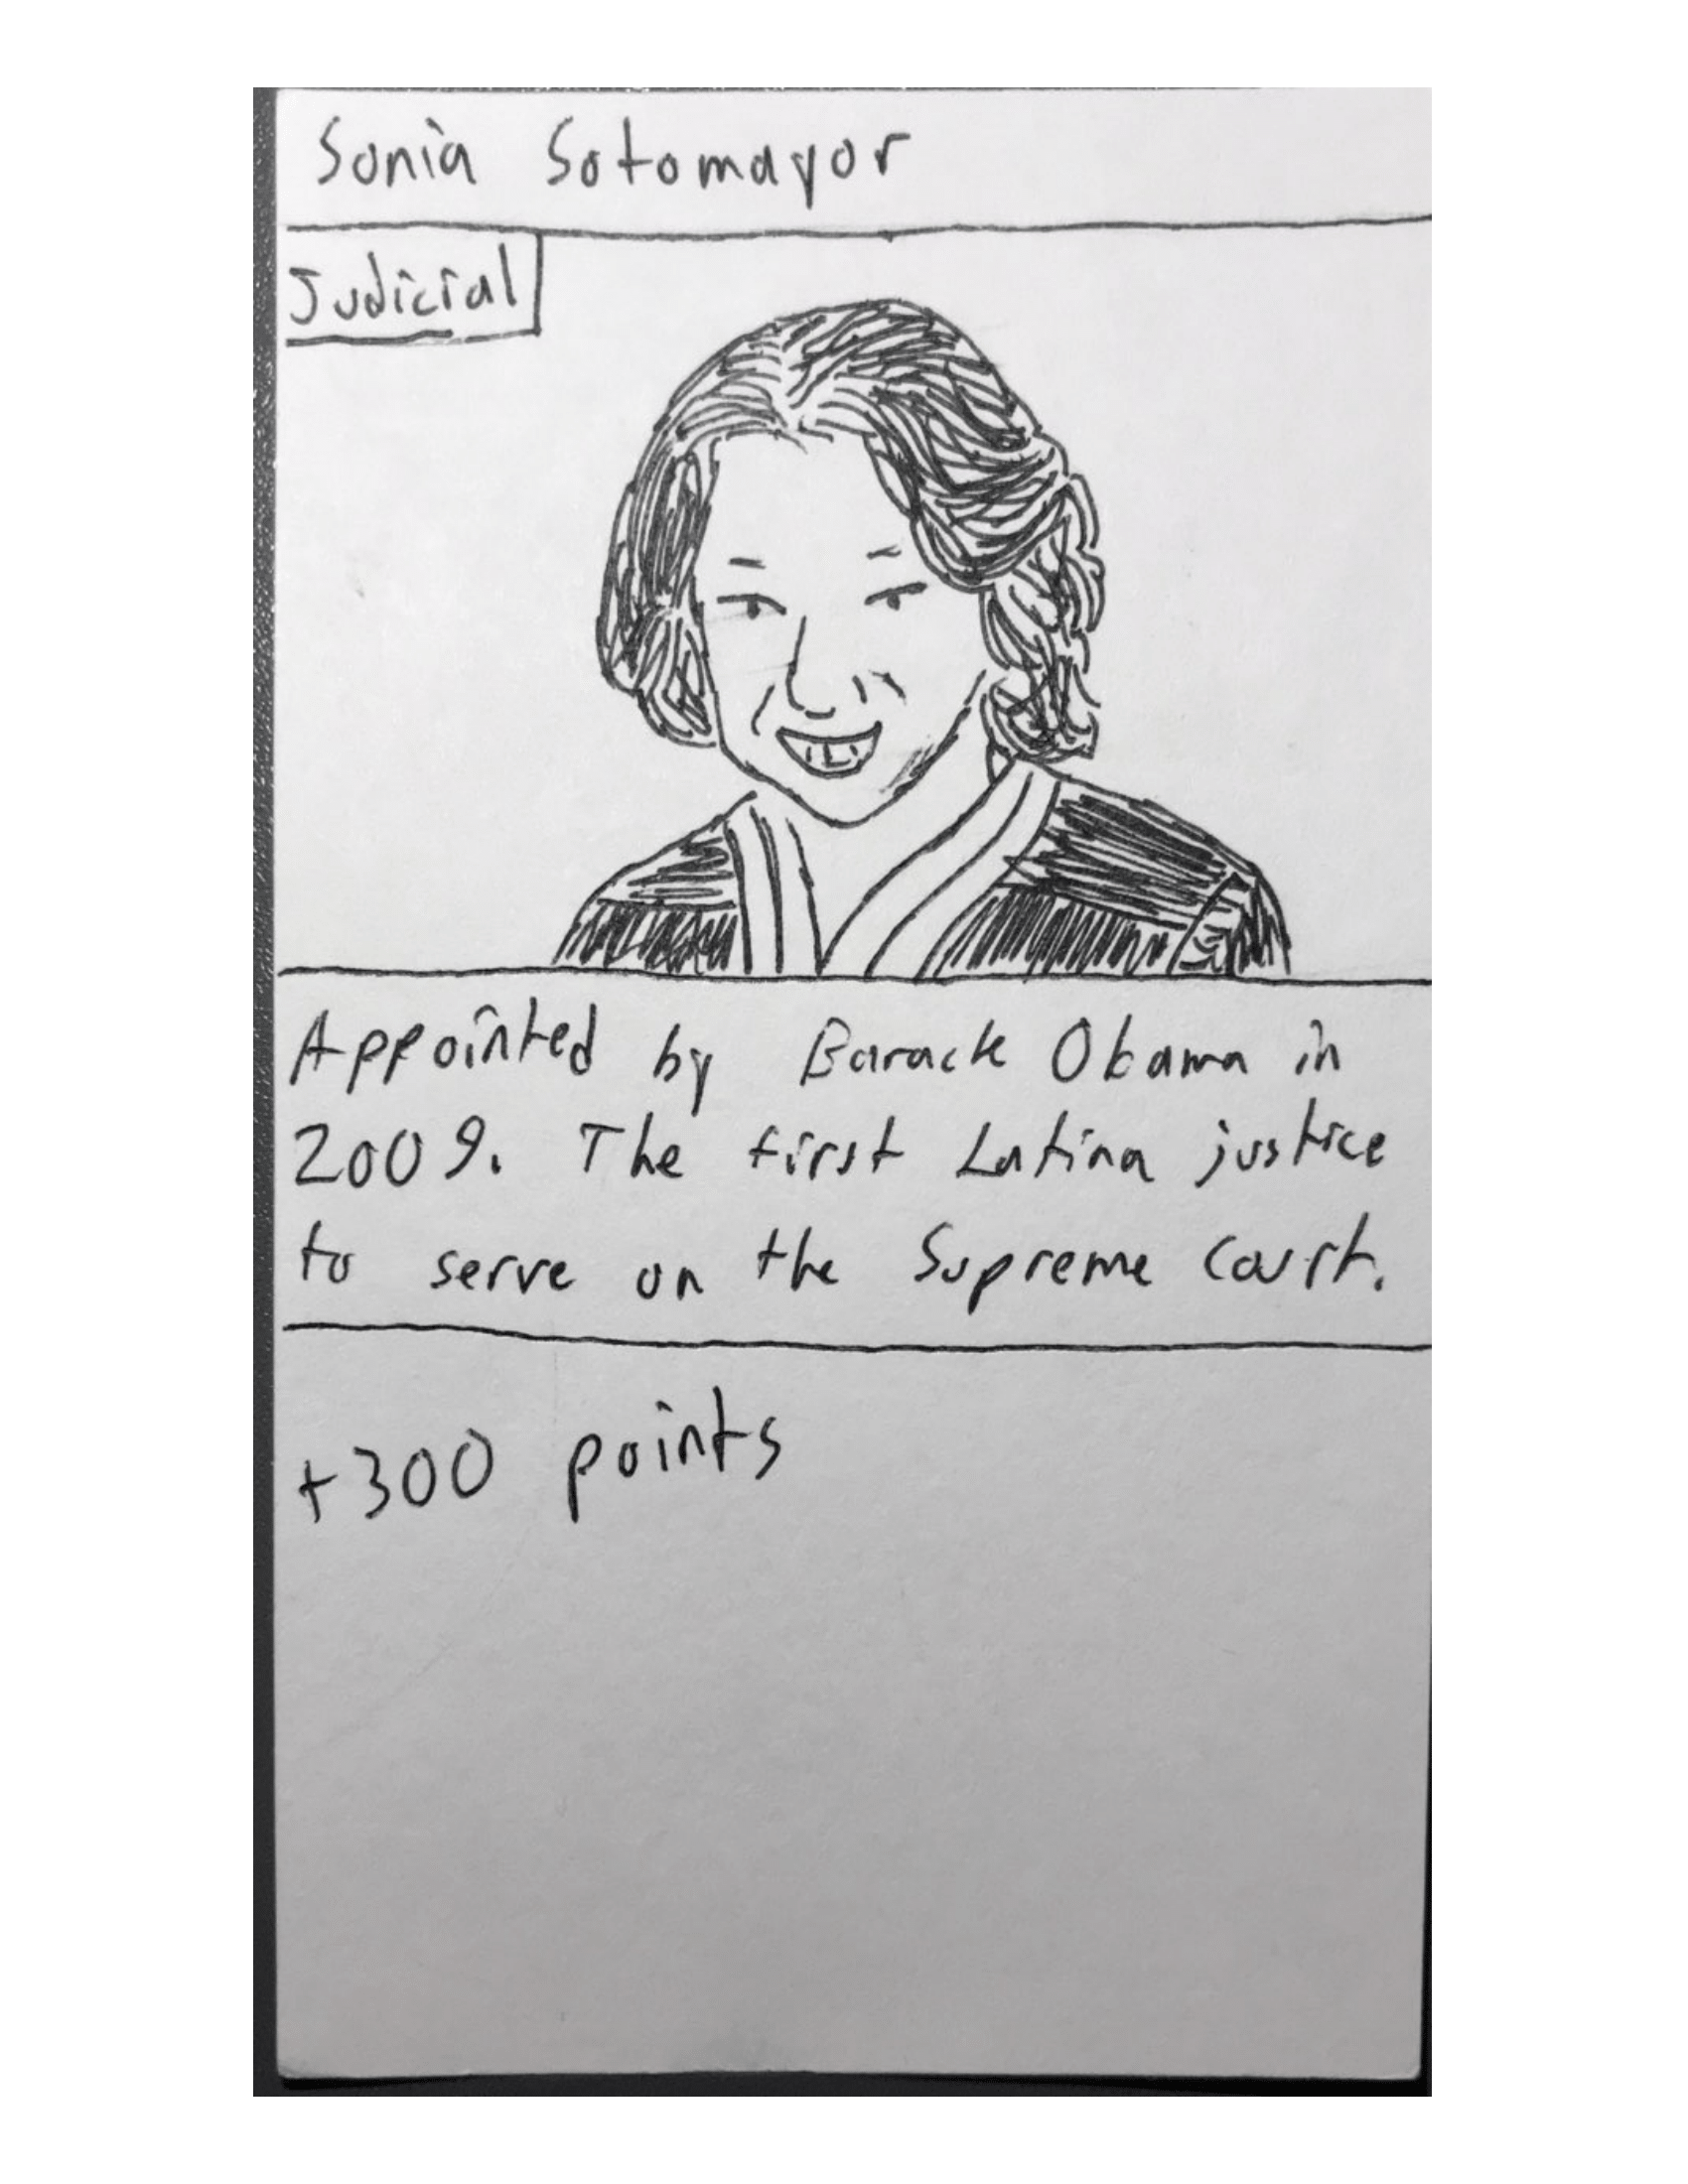 Sonia Sotomayor
Judicial
Appointed by Barack Obama in
2009. The first Latina justice
to serve on the Supreme Court.
+300 points